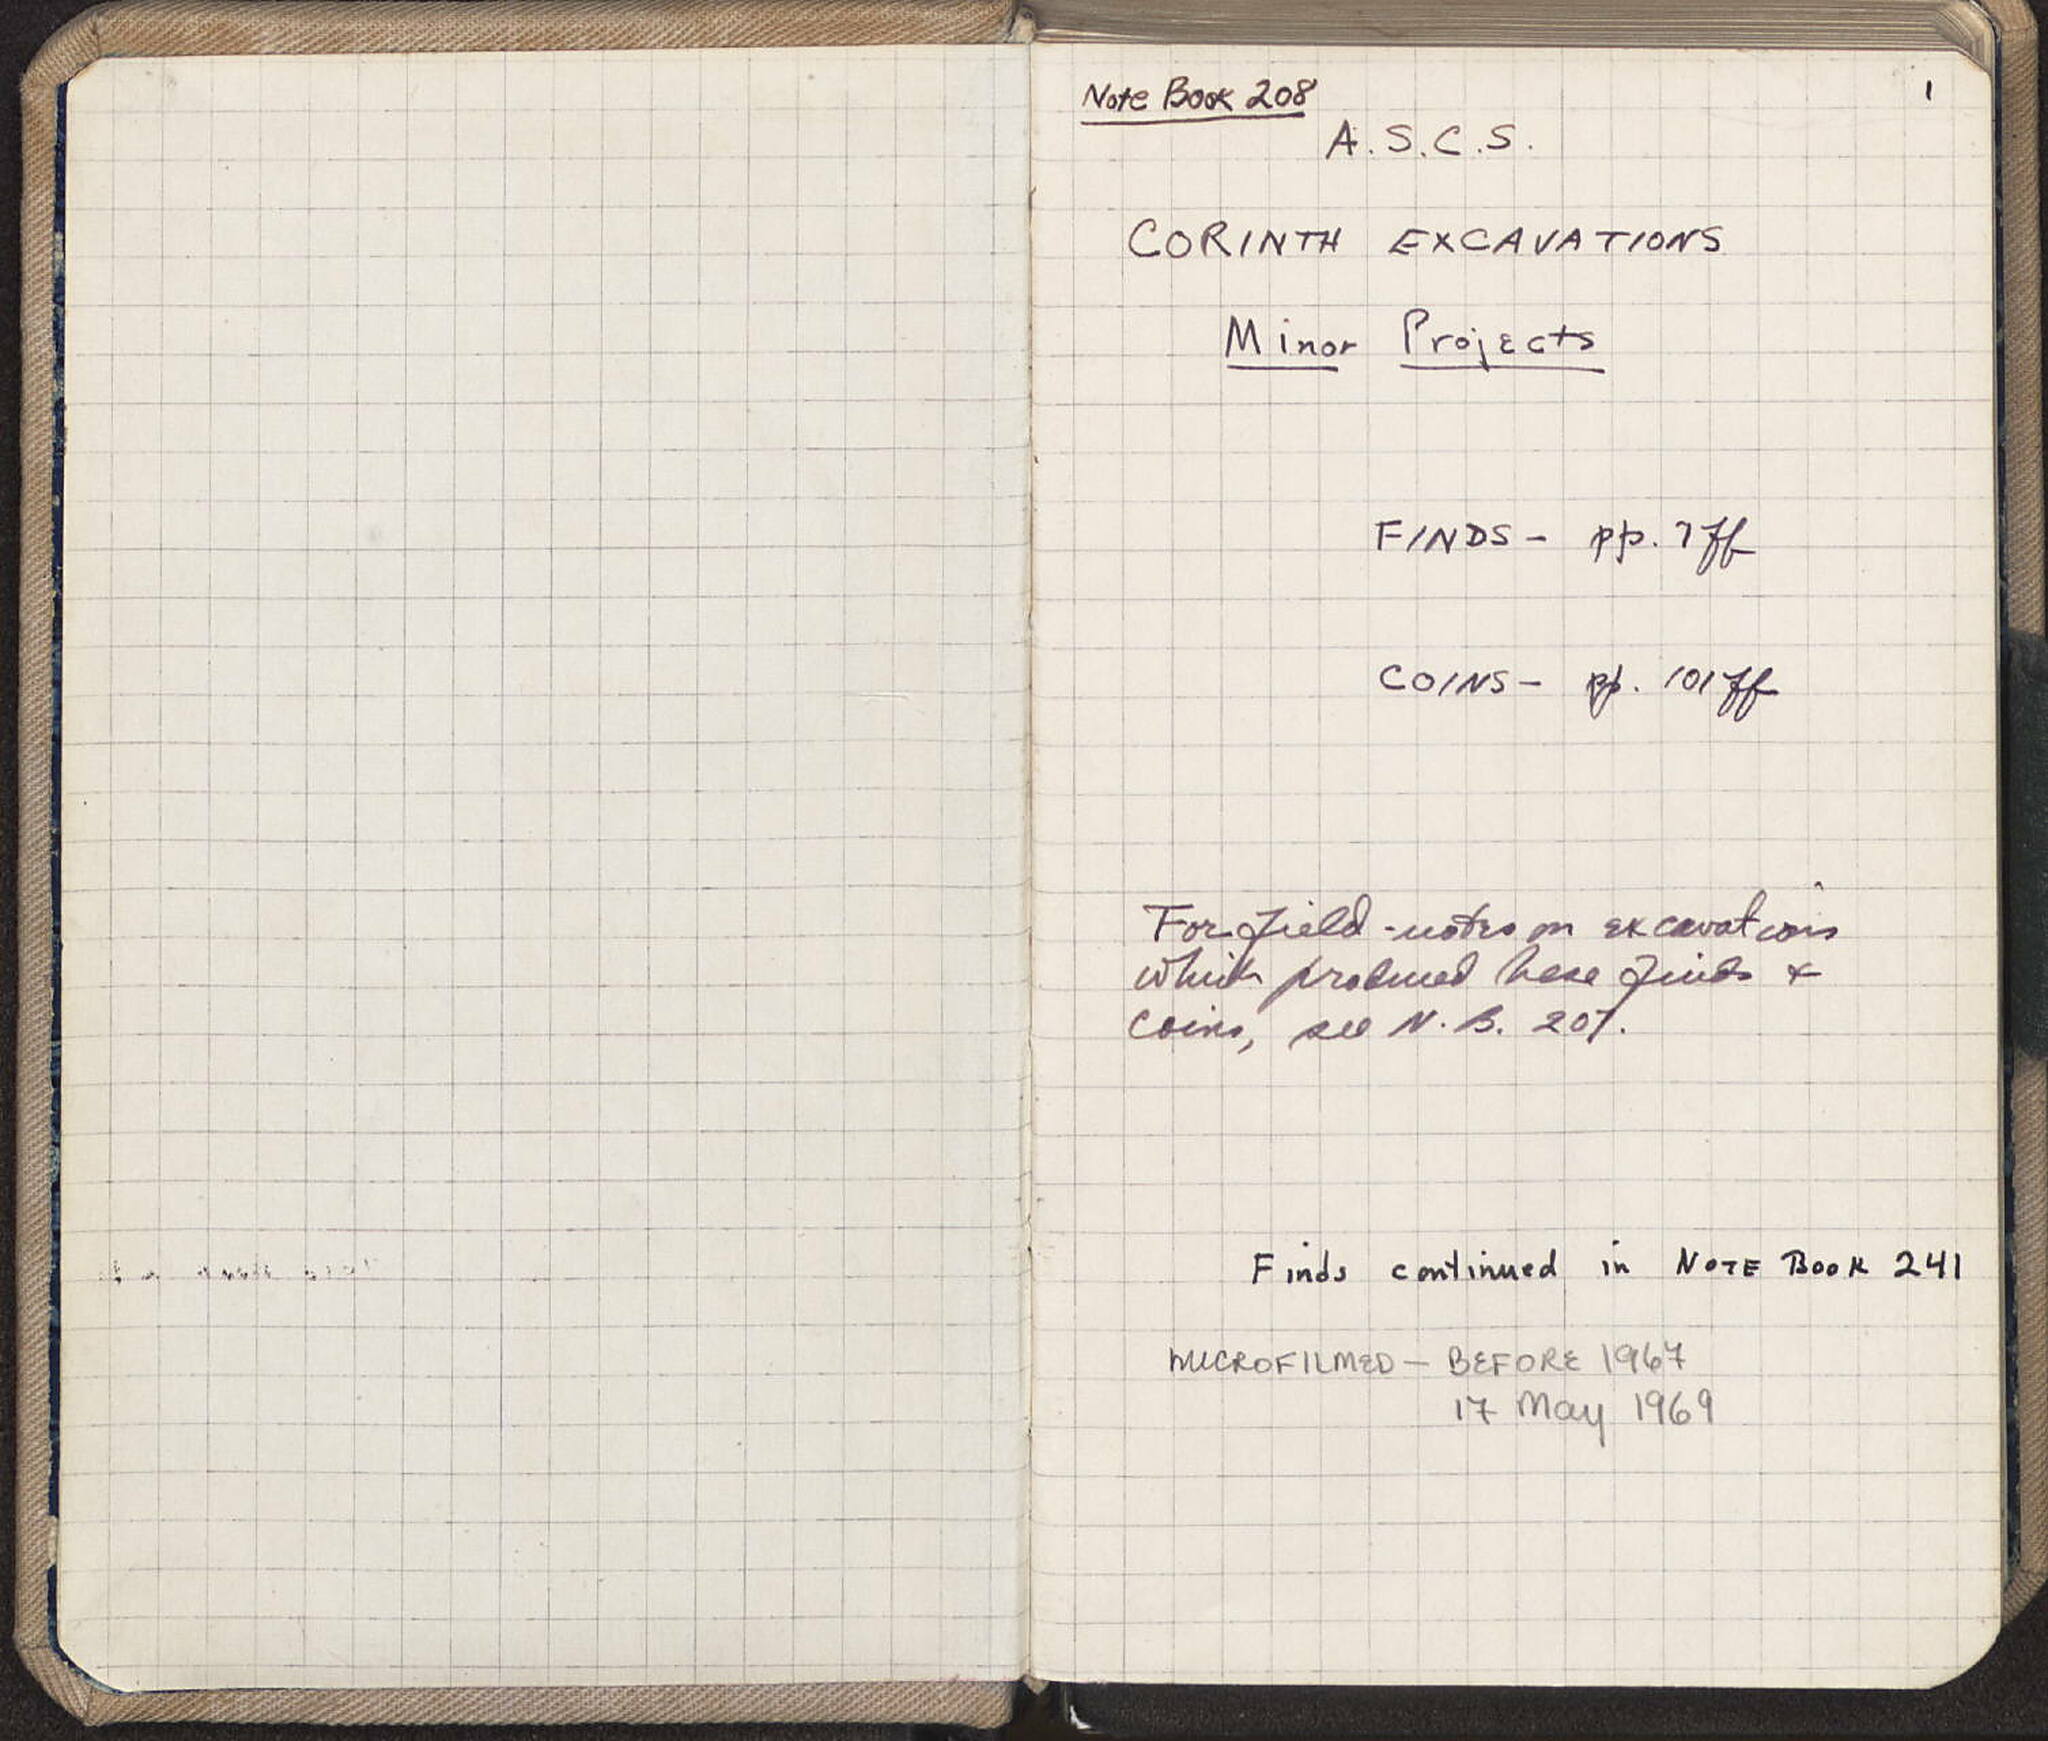 Note Book 208
1
A.S.C.S.
CORINTH EXCAVATIONS
Minor Projects
FINDS - pp. 7ff
COINS - pp. 101ff
For field-notes on excavations
which produced these finds +
coins, see N.B. 207.
Finds continued in NOTE BOOK 241
MICROFILMED - BEFORE 1967
17 May 1969